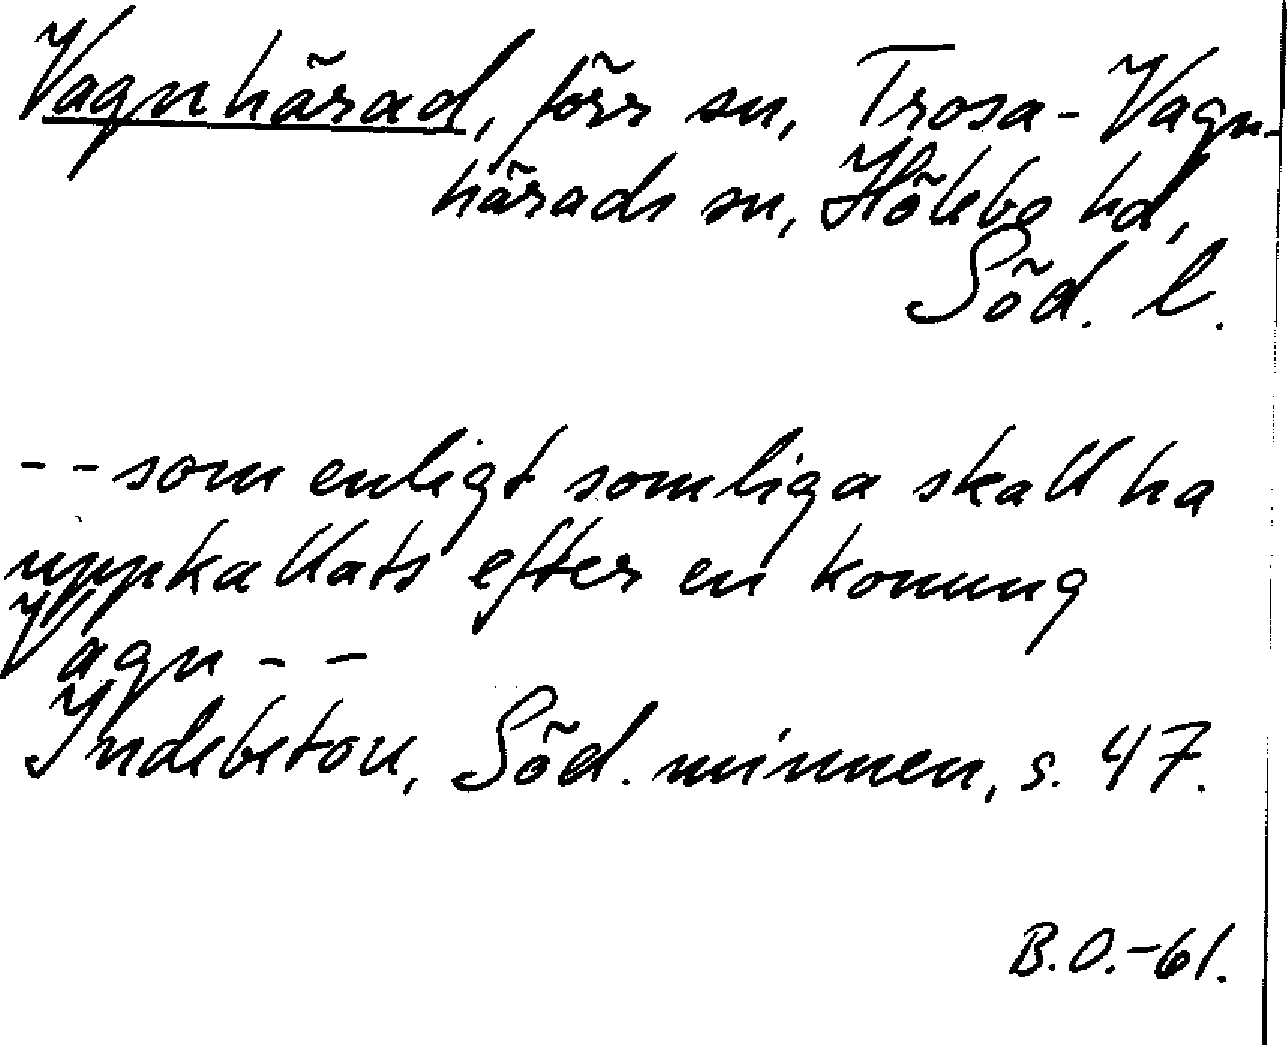 Vagnhärad, förr sn, Trosa-Vagn-
härads sn, Hölebo hd,
Söd. l.
-- som enligt somliga skall ha
uppkallats efter en konung
Vagn --
Indebetou, Söd. minnen, s. 47.
B.O.-61.